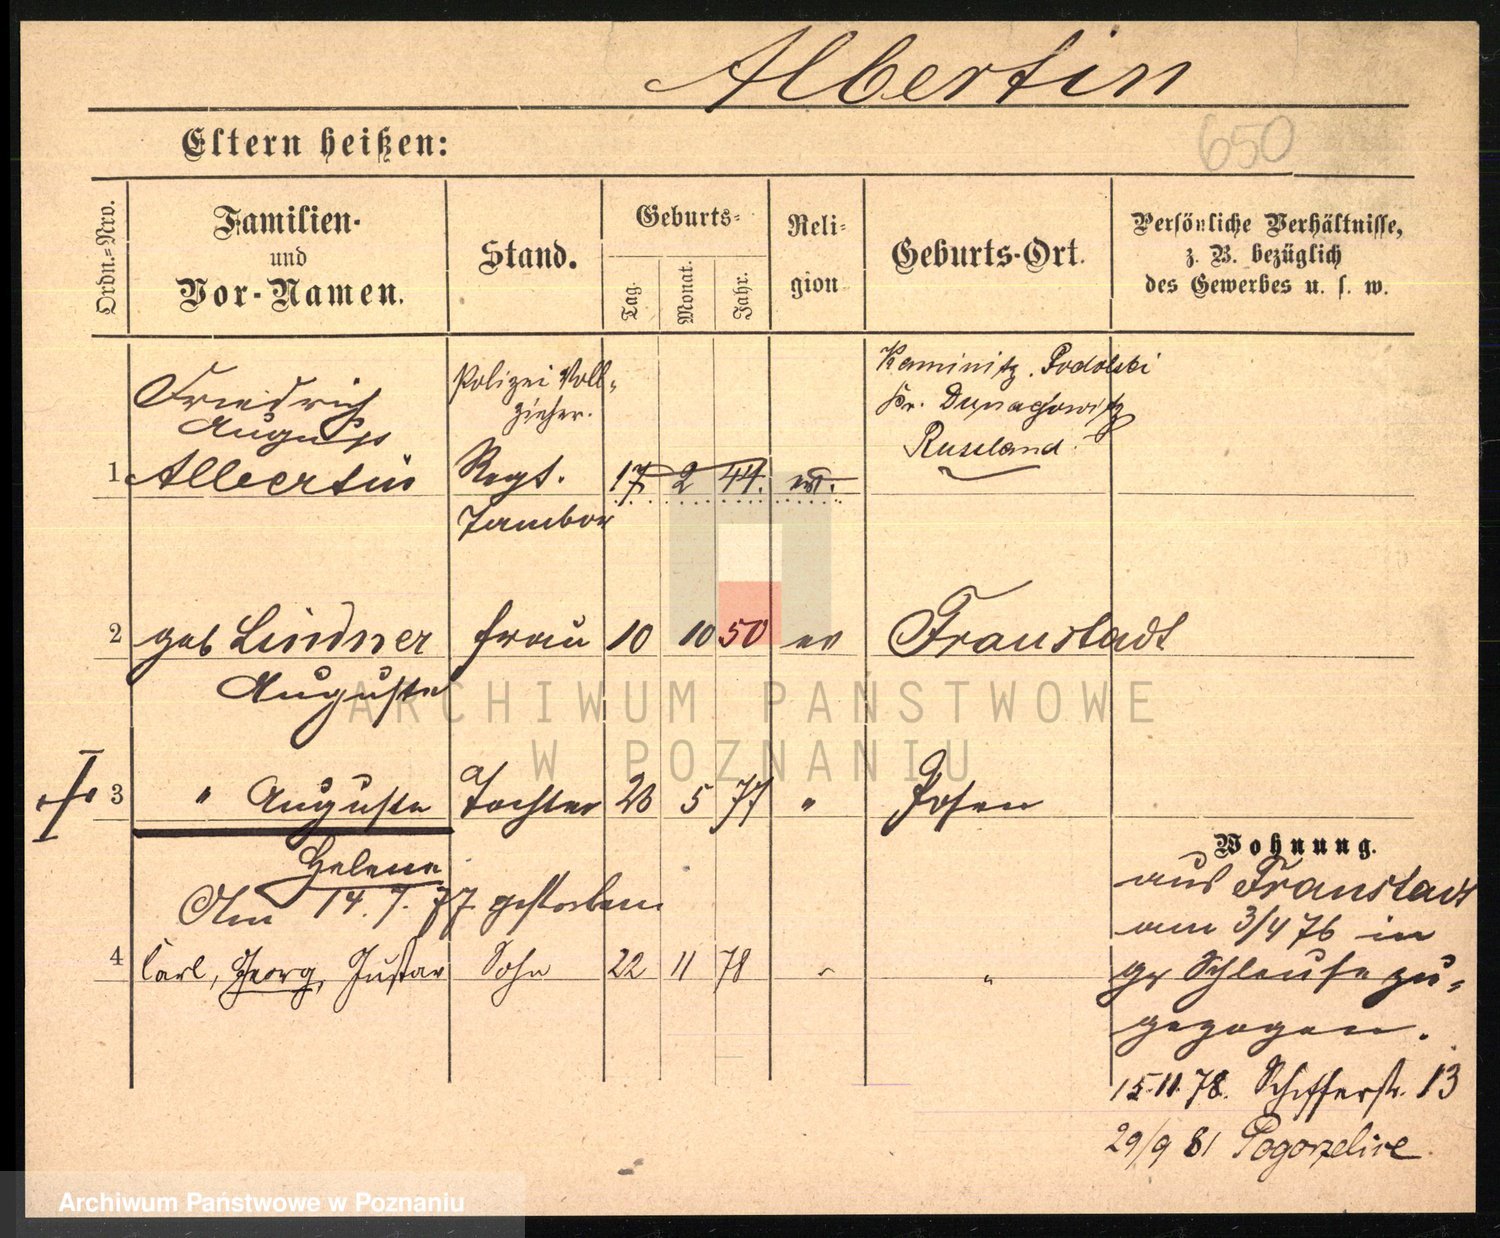 Albertin
650
Eltern heißen:
Ordn.-Nro.
Familien- und Vor-Namen.
Stand.
Geburts-
Tag.
Monat.
Jahr.
Reli-
gion
Geburts-Ort.
Persönliche Verhältnisse,
z. B. bezüglich
des Gewerbes u. s. w.
Friedrich
August
1 Albertin
Polizei Voll-
zieher.
Regt.
Tambor
17 2 44. ev.
Kaminitz. Podolski
Kr. Dunagowitz
Russland.
2 geb Lindner Frau 10 10 50 ev Fraustadt
Auguste
3 " Auguste Tochter 28 5 77 " Posen
Helene
Am 14. 7. 77. gestorben
4 Carl, Georg, Gustav Sohn 22 11 78 " "
Wohnung.
aus Fraustadt
am 3/4 76 in
gr Schleuse zu-
gezogen.
15.11.78. Schifferstr. 13
29/9 81 Pogorzelice
ARCHIWUM PAŃSTWOWE
W POZNANIU
Archiwum Państwowe w Poznaniu